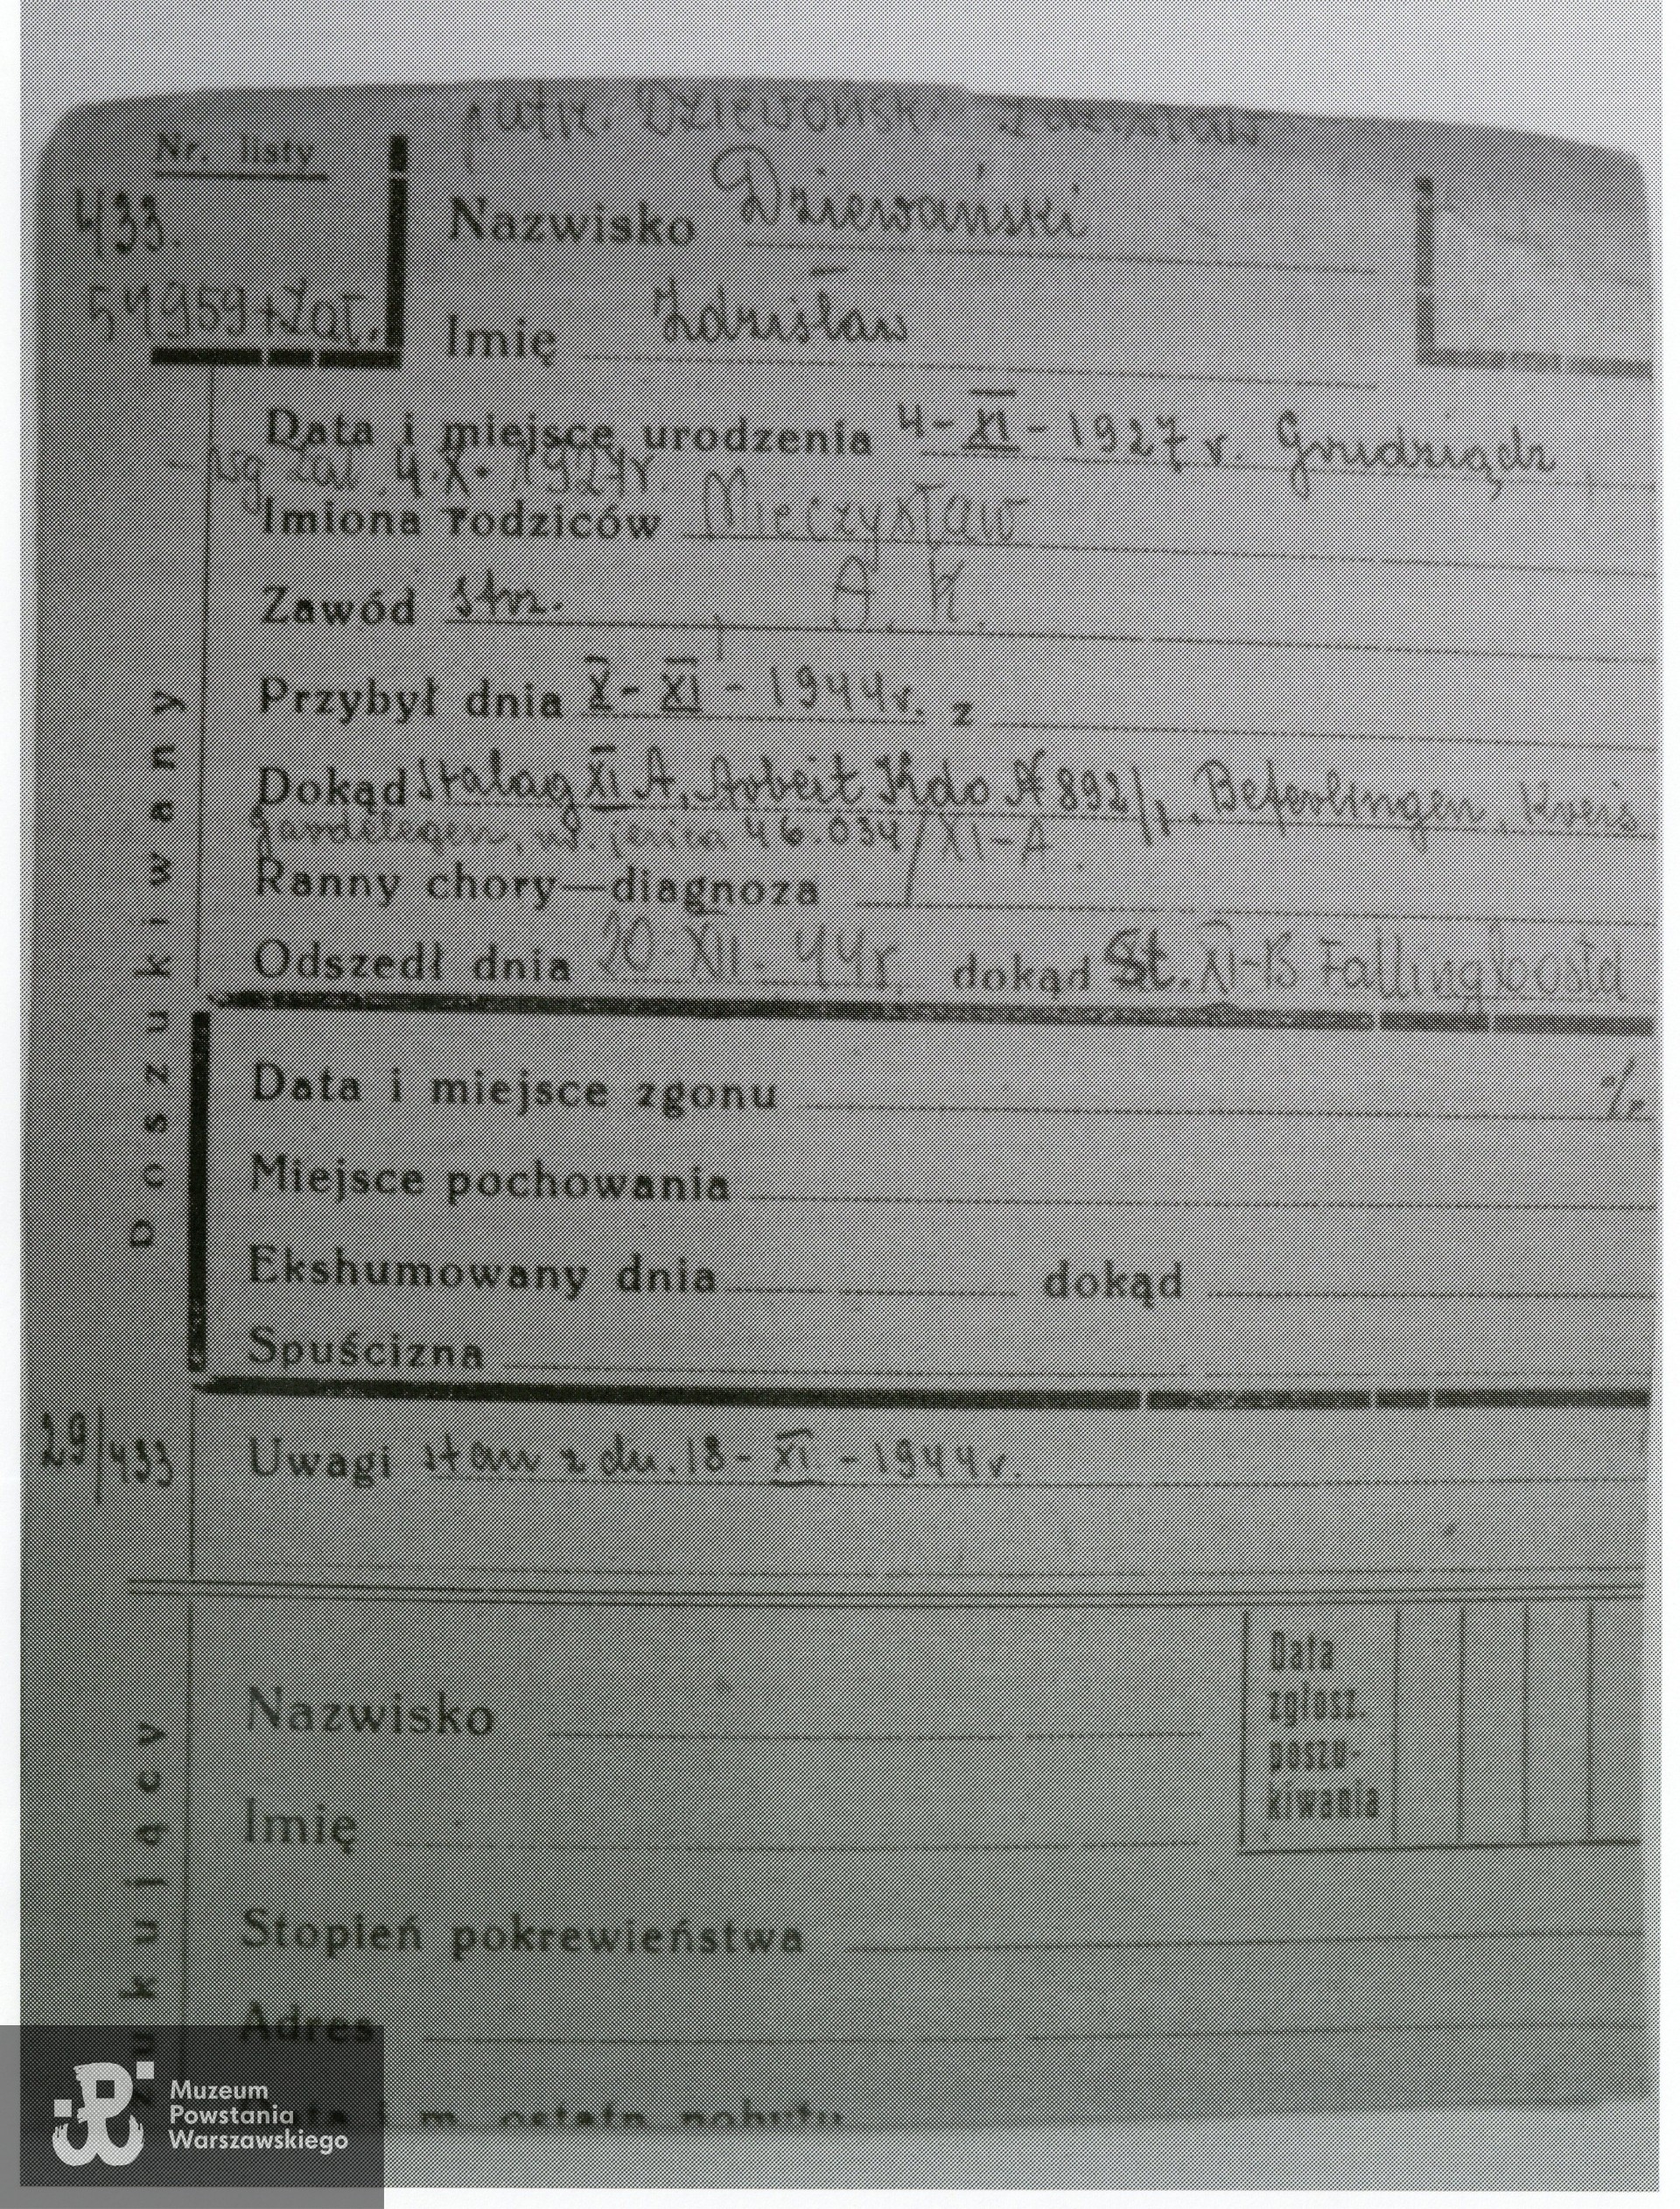 patrz. Dziewoński Zdzisław
Nr. listy
433.
Nazwisko Dziewański
51959+Zał.
Imię Zdzisław
Data i miejsce urodzenia 4-XI-1927 r. Grudziądz
wg zał. 4.X.1927r.
Imiona rodziców Mieczysław
Zawód strz. A.K.
Przybył dnia X-XI-1944r. z
Dokąd Stalag XI A, Arbeit Kdo N 892/1, Beferlingen, Kreis
Gardelegen, nr. jeńca 46.034/XI-A.
Ranny chory—diagnoza
Odszedł dnia 20-XII-44r. dokąd St. XI-B Fallingbostel
Doszukiwany
Data i miejsce zgonu
Miejsce pochowania
Ekshumowany dnia dokąd
Spuścizna
29/433
Uwagi stan z dn. 18-XI-1944r.
Nazwisko
Data
zgłosz.
poszu-
kiwania
Imię
Stopień pokrewieństwa
Adres
zukujący
Data i m. ostatn. pobytu
Muzeum
Powstania
Warszawskiego